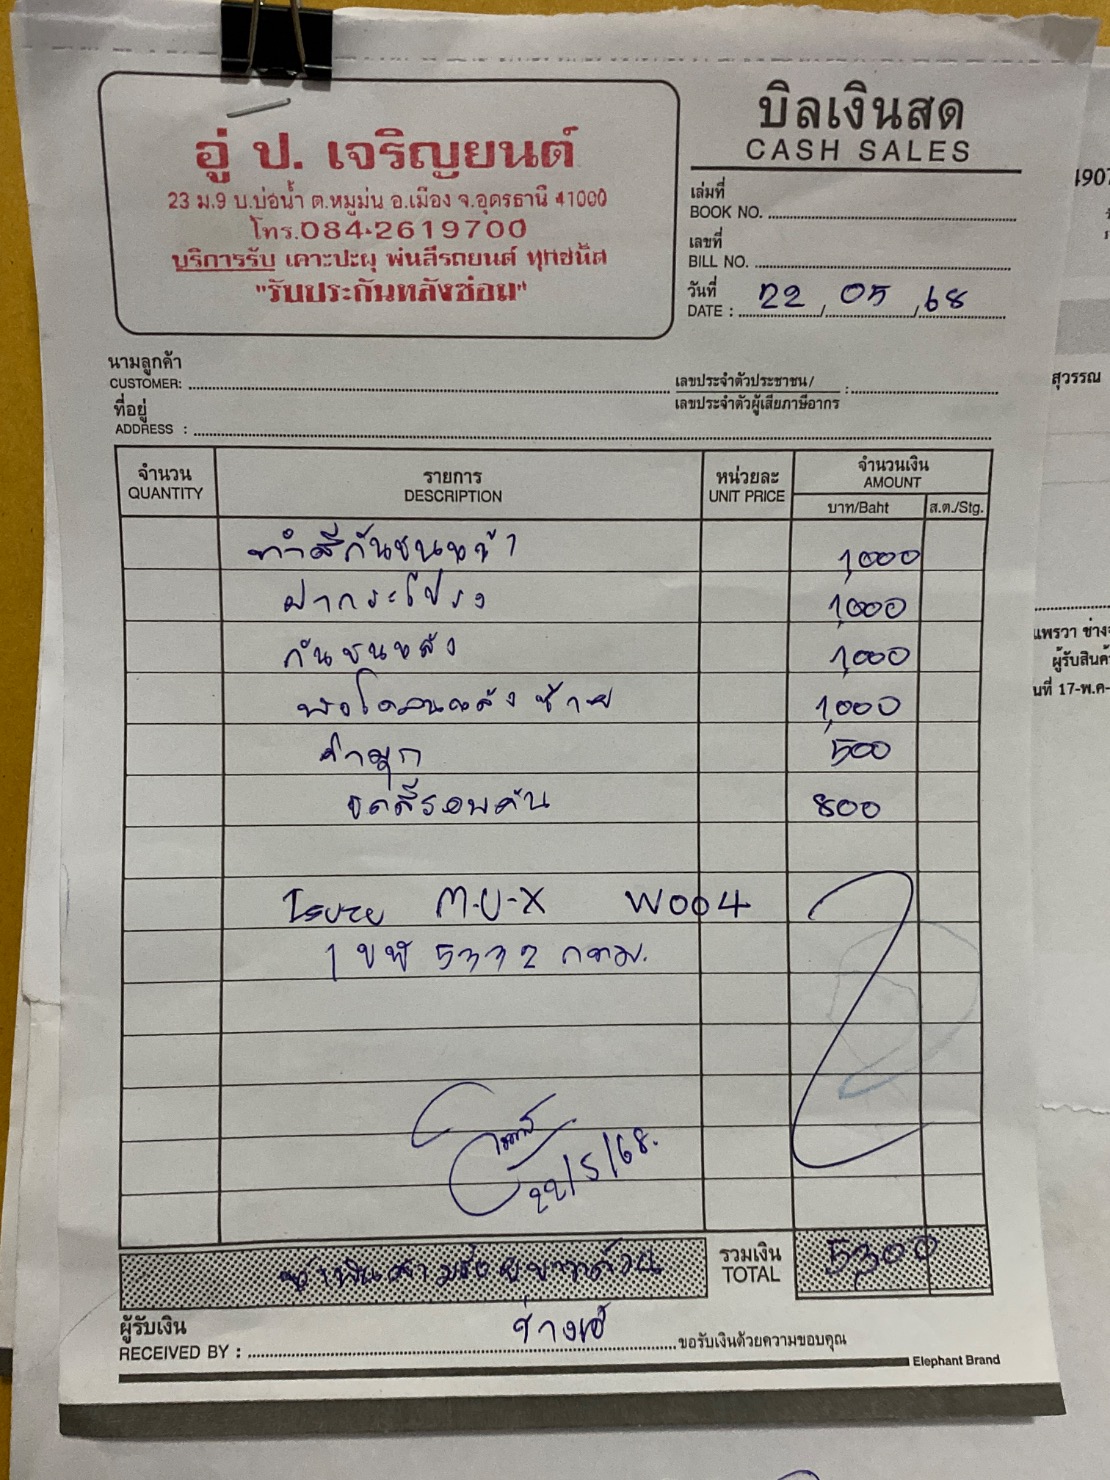 บิลเงินสด
CASH SALES
อู่ ป. เจริญยนต์
23 ม.9 บ.บ่อน้ำ ต.หมูม่น อ.เมือง จ.อุดรธานี 41000
โทร.084-2619700
บริการรับ เคาะปะผุ พ่นสีรถยนต์ ทุกชนิด
"รับประกันหลังซ่อม"
เล่มที่
BOOK NO.
เลขที่
BILL NO.
วันที่
DATE : 22 / 05 / 68
นามลูกค้า
CUSTOMER:
เลขประจำตัวประชาชน/
เลขประจำตัวผู้เสียภาษีอากร :
ที่อยู่
ADDRESS :
จำนวน รายการ หน่วยละ จำนวนเงิน
QUANTITY DESCRIPTION UNIT PRICE AMOUNT
บาท/Baht ส.ต./Stg.
ทำสีกันชนหน้า 1,000
ฝากระโปรง 1,000
กันชนหลัง 1,000
หลังซ้าย 1,000
500
ขัดสีรอบคัน 800
M-U-X W004
1 ขฬ 5332 กทม.
22/5/68.
ห้าพันสามร้อยบาทถ้วน รวมเงิน
TOTAL 5,300
ผู้รับเงิน
RECEIVED BY : ช่างเอ๋ ขอรับเงินด้วยความขอบคุณ
Elephant Brand
4907
สุวรรณ
แพรวา ช่าง
ผู้รับสินค้
นที่ 17-พ.ค-